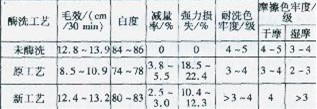 酶洗工艺 毛效/(cm/30 min) 白度 减量率/% 强力损失/% 耐洗色牢度/级 摩擦色牢度/级
干摩 湿摩
未酶洗 12.8~13.9 84~86 0 0 4~5 4~5 3~4
原工艺 8.5~10.9 74~78 3.8~5.5 18.5~22.4 3~4 3~4 2~3
新工艺 12.4~13.2 80~83 2.5~3.0 10.4~12.3 >3~4 4 >3